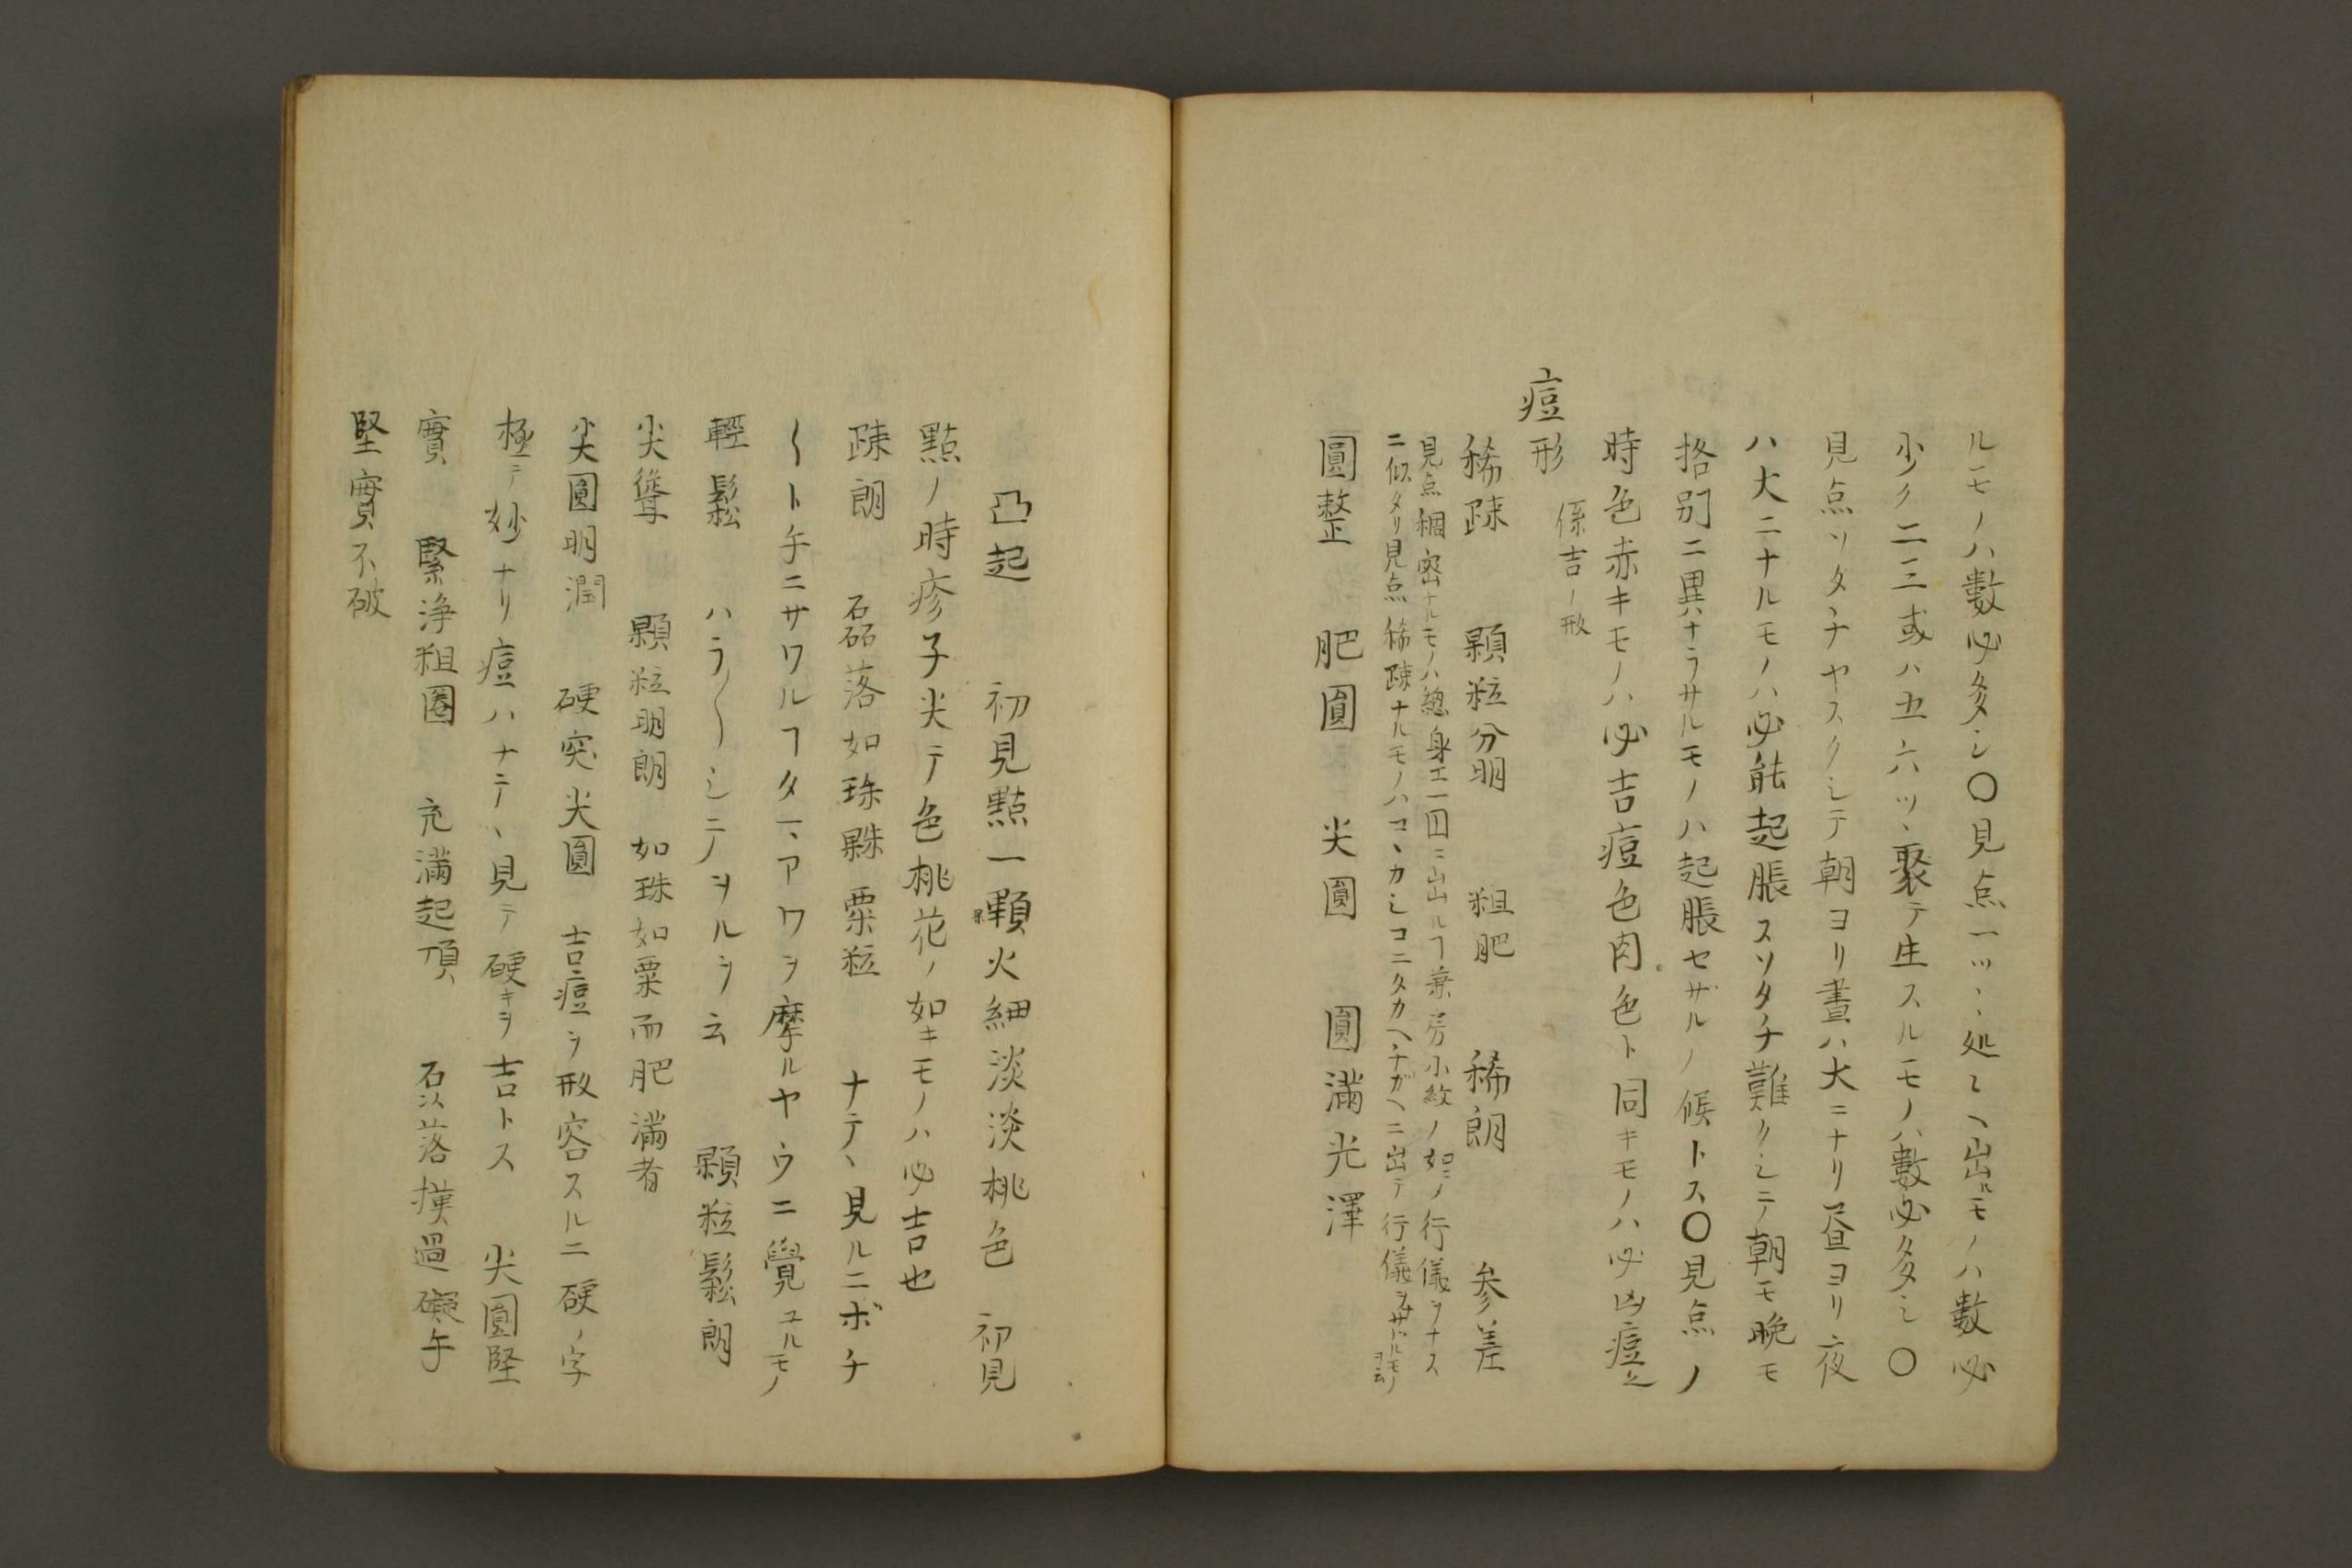 ルモノハ數必多シ〇見点一ツヽ処々ヘ出ルモノハ數必
少ク二三或ハ五六ツヽ聚テ生スルモノハ數必多シ〇
見点ソタチヤスクシテ朝ヨリ晝ハ大ニナリ昼ヨリ夜
ハ大ニナルモノハ必能起脹スソタチ難クシテ朝モ晩モ
格別ニ異ナラサルモノハ起脹セザルノ候トス〇見点ノ
時色赤キモノハ必吉痘色肉色ト同キモノハ必凶痘也
痘形 係吉ノ形
稀踈 顆粒分明 粗肥 稀朗 参差
見点稠密ナルモノハ總身エ一囙ニ出ルヿ 小紋ノ如ニノ行儀ヲナス
ニ似タリ見点稀踈ナルモノハコヽカシコニタカヘチガヘニ出テ行儀ヲナサヾルモノヲ云
圓整 肥圓 尖圓 圓滿光澤
凸起 初見點一顆火細淡淡桃色 初見
點ノ時疹子尖テ色桃花ノ如キモノハ必吉也
踈朗 磊落如珠 粟粒 ナテヽ見ルニボチ
〱ト手ニサワルヿタトヽアワヲ摩ルヤウニ覺ユルモノ
輕鬆 ハラ〱シテノヲルヲ云 顆粒鬆朗
尖聳 顆粒明朗 如珠如粟而肥滿者
尖圓明潤 硬突尖圓 吉痘ヲ形容スルニ硬ノ字
極テ妙ナリ痘ハナテヽ見テ硬キヲ吉トス 尖圓堅
實 緊浄粗圏 充滿起頂 落摸過礙手
堅實不破